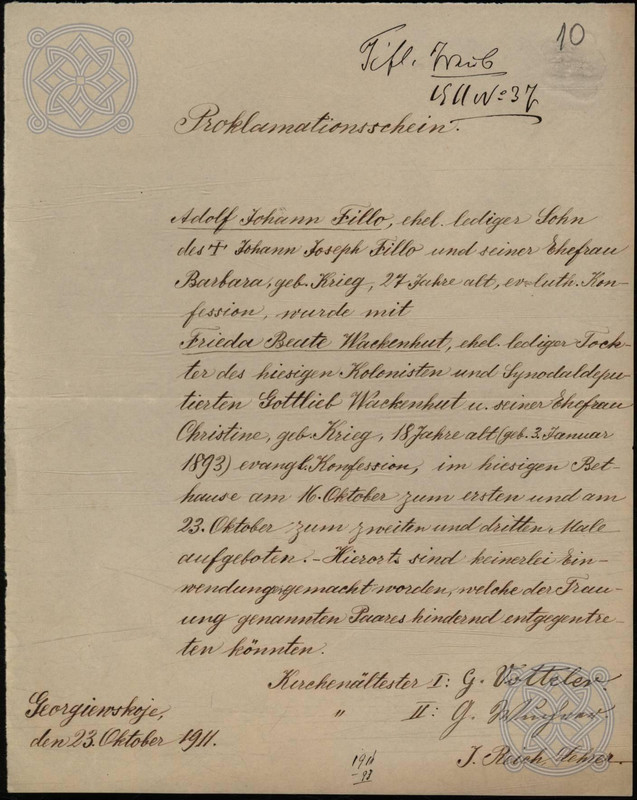 10
Tifl.
1911 No 37
Proklamationsschein.
Adolf Johann Fillo, ehel. lediger Sohn
des + Johann Joseph Fillo und seiner Ehefrau
Barbara, geb. Krieg, 27 Jahre alt, ev-luth. Kon-
fession, wurde mit
Frieda Beate Wackenhut, ehel. lediger Toch-
ter des hiesigen Kolonisten und Synodaldepu-
tierten Gottlieb Wackenhut u. seiner Ehefrau
Christine, geb. Krieg, 18 Jahre alt (geb. 3. Januar
1893) evangl. Konfession, im hiesigen Bet-
hause am 16. Oktober zum ersten und am
23. Oktober zum zweiten und dritten Male
aufgeboten. - Hierorts sind keinerlei Ein-
wendungen gemacht worden, welche der Trau-
ung genannten Paares hindernd entgegentre-
ten könnten.
Kirchenältester I: G. Vötteler.
" II: G.
Georgiewskoje,
den 23. Oktober 1911.
J. Reich, Lehrer.
1911
-93